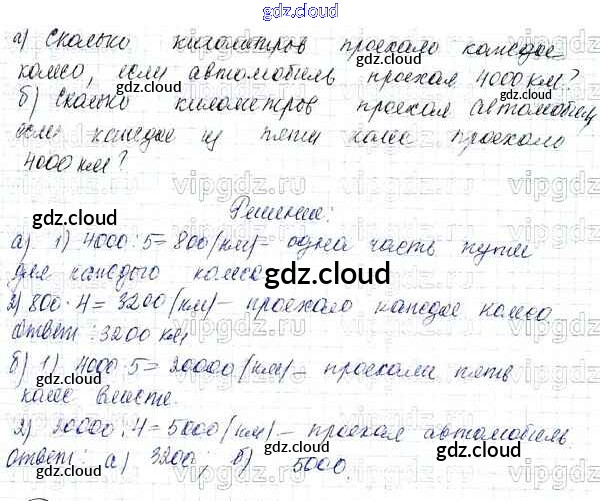 gdz.cloud
а) Сколько километров проехало каждое
колесо, если автомобиль проехал 4000 км?
б) Сколько километров проехал автомобиль,
если каждое из пяти колес проехало
4000 км?
vipgdz.ru
gdz.cloud
Решение:
а) 1) 4000 : 5 = 800 (км) – одна часть пути
для каждого колеса.
gdz.cloud
2) 800 · 4 = 3200 (км) – проехало каждое колесо
Ответ : 3200 км.
б) 1) 4000 · 5 = 20000 (км) – проехали пять
колес вместе.
gdz.cloud
2) 20000 : 4 = 5000 (км) – проехал автомобиль.
Ответ : а) 3200 ; б) 5000.
gdz.cloud